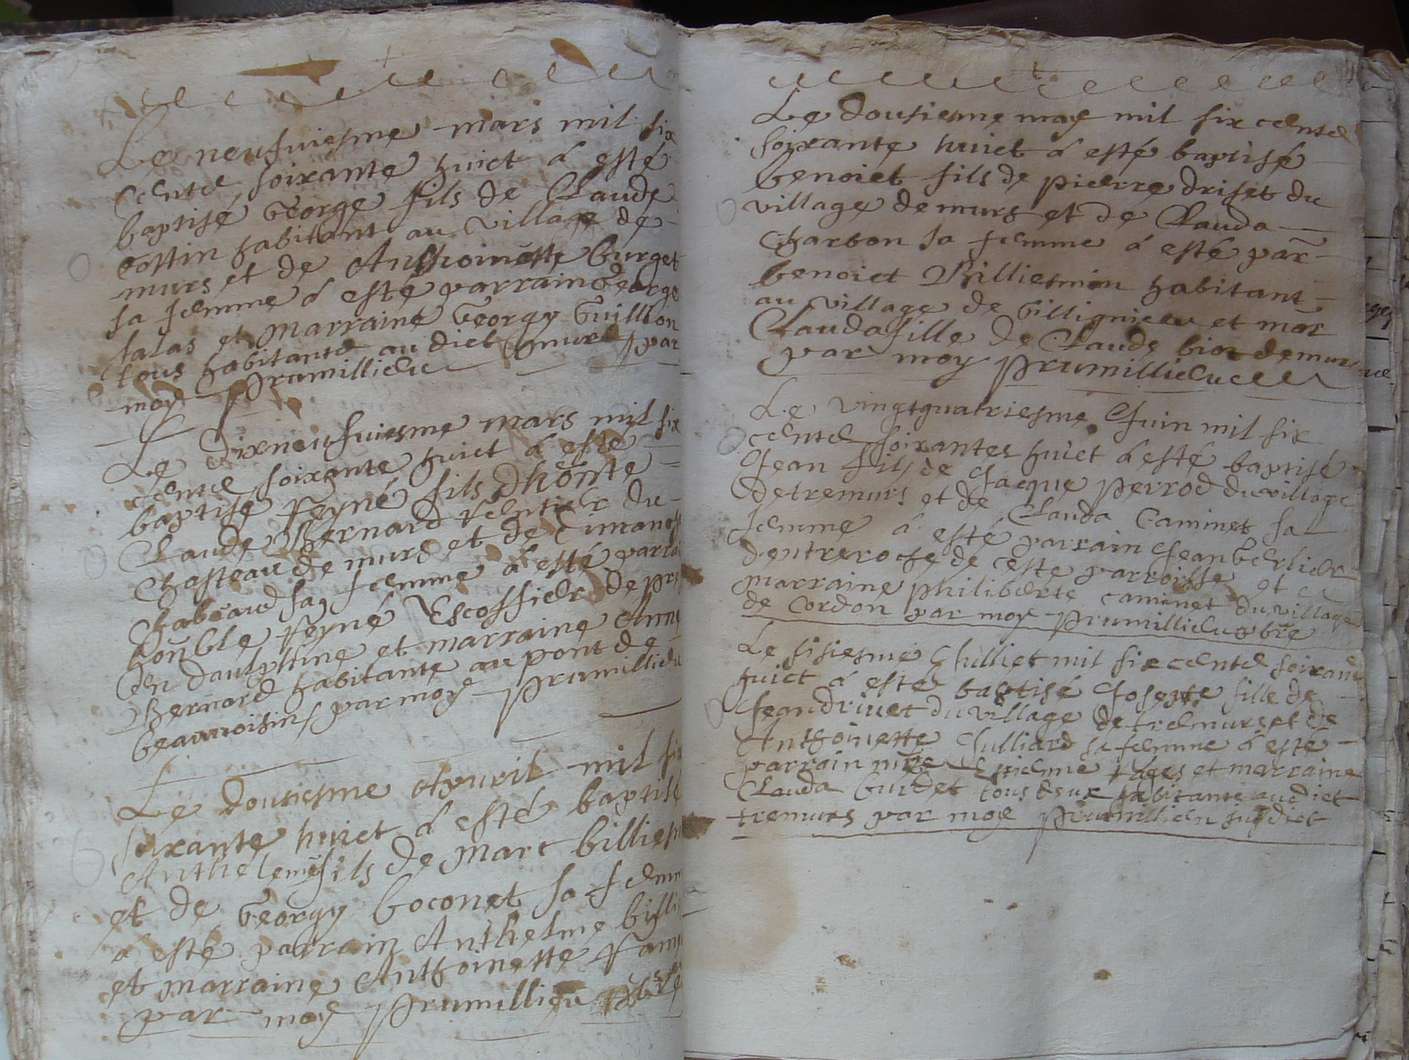 Le neufuiesme mars mil six
centz soixante huict á esté
baptisé George fils de Claude
Costin habitant au village de
murs et de Anthoinette burget
sa femme á esté parrain George
talas et marraine Georgy Guillion
tous habitants au dict murs par
moy Prumillieu
Le Dixneufuiesme mars mil six
centz soixante huict á esté
baptisé Reyné fils Dhonte
Claude Bernard rentier du
Chasteau de murs et de
Chabeaud sa femme á esté
honble Reyné Escoffier de
en dauphine et marraine
Bernard habitante au pont de
beauuoisin par moy Prumillieu
Le Dousiesme Apuril mil
soixante huict á esté baptisé
Anthelemy fils de Marc
et de Georgy boconet sa femme
á esté parrain Anthelme
et marraine Anthoinette
par moy Prumillieu
Le dousiesme may mil six centz
soixante huict á esté baptisé
benoict fils de pierre driset du
village de murs et de Clauda
Charbon sa femme á esté par
benoict Billiemin habitant
au village de Gillignieu et mar
Clauda fille de Claude biot de murs
par moy Prumillieu
Le vingtquatriesme Juin mil six
centz soixantes huict á esté baptisé
Jean fils de Jacque perrod du village
de tremurs et de Clauda Caminet sa
femme á esté parrain Jean berlier
dentreroche de ceste parroisse et
marraine philiberte caminet du village
de Cordon par moy Prumillieu pbre
Le sisiesme Julliet mil six centz soixante
huict á esté baptisé Josepte fille de
Jean driuet du village de tremurs et de
Anthoinette Julliard sa femme á esté
parrain mre Estienne et marraine
Clauda Guidet tous deux habitants audict
tremurs par moy Prumillieu susdict